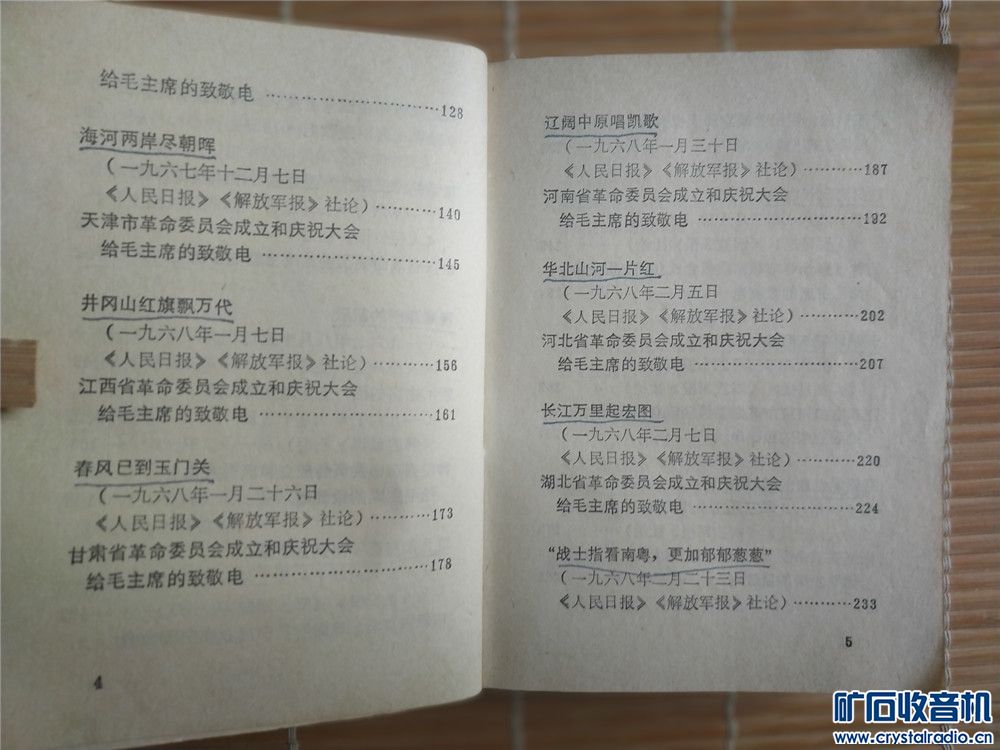 给毛主席的致敬电 …………………………128
海河两岸尽朝晖
(一九六七年十二月七日
《人民日报》《解放军报》社论)…………140
天津市革命委员会成立和庆祝大会
给毛主席的致敬电 …………………………145
井冈山红旗飘万代
(一九六八年一月七日
《人民日报》《解放军报》社论)…………156
江西省革命委员会成立和庆祝大会
给毛主席的致敬电 …………………………161
春风已到玉门关
(一九六八年一月二十六日
《人民日报》《解放军报》社论)…………173
甘肃省革命委员会成立和庆祝大会
给毛主席的致敬电 …………………………178
4
辽阔中原唱凯歌
(一九六八年一月三十日
《人民日报》《解放军报》社论)…………187
河南省革命委员会成立和庆祝大会
给毛主席的致敬电 …………………………192
华北山河一片红
(一九六八年二月五日
《人民日报》《解放军报》社论)…………202
河北省革命委员会成立和庆祝大会
给毛主席的致敬电 …………………………207
长江万里起宏图
(一九六八年二月七日
《人民日报》《解放军报》社论)…………220
湖北省革命委员会成立和庆祝大会
给毛主席的致敬电 …………………………224
“战士指看南粤,更加郁郁葱葱”
(一九六八年二月二十三日
《人民日报》《解放军报》社论)…………233
5
矿石收音机
www.crystalradio.cn